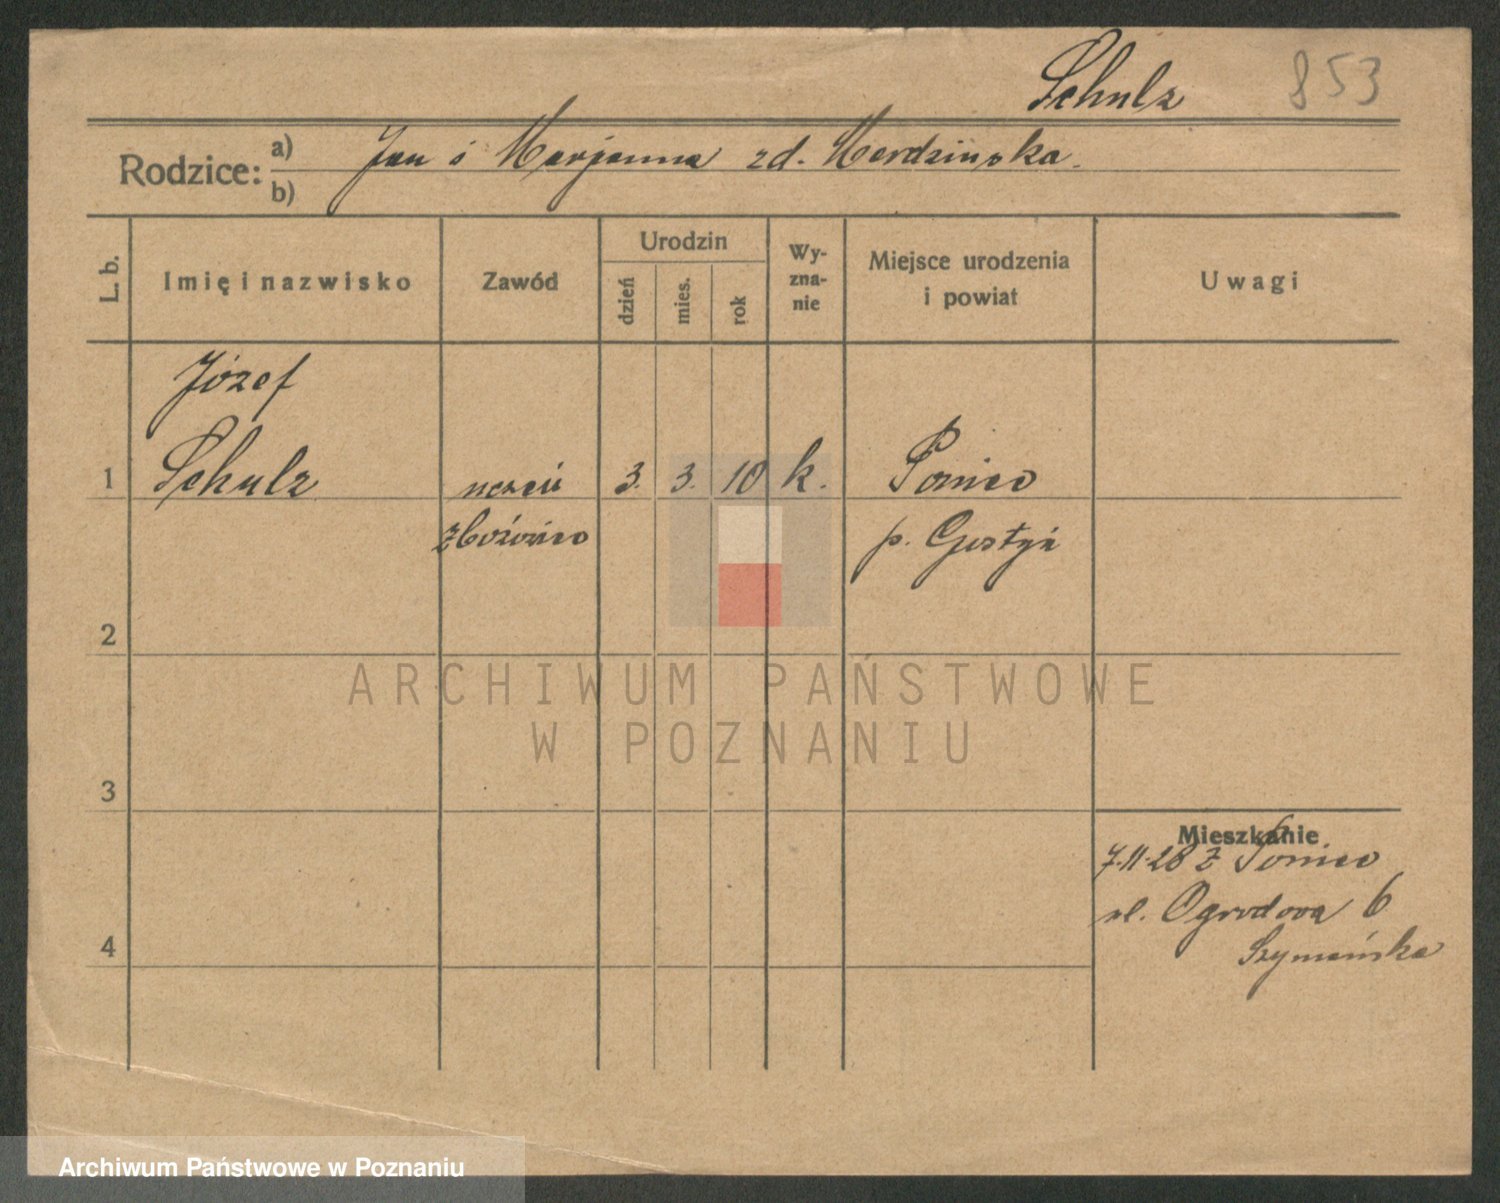 Schulz 853
Rodzice: a) Jan i Marjanna zd. Merdzinska.
b)
L. b. Imię i nazwisko Zawód Urodzin dzień mies. rok Wy-zna-nie Miejsce urodzenia i powiat Uwagi
Józef
1 Schulz uczeń 3. 3. 10 k. Poniec
p. Gostyń
2
ARCHIWUM PAŃSTWOWE
W POZNANIU
3
Mieszkanie
7.11.28 z Poniec
ul. Ogrodowa 6
Szymańska
4
Archiwum Państwowe w Poznaniu